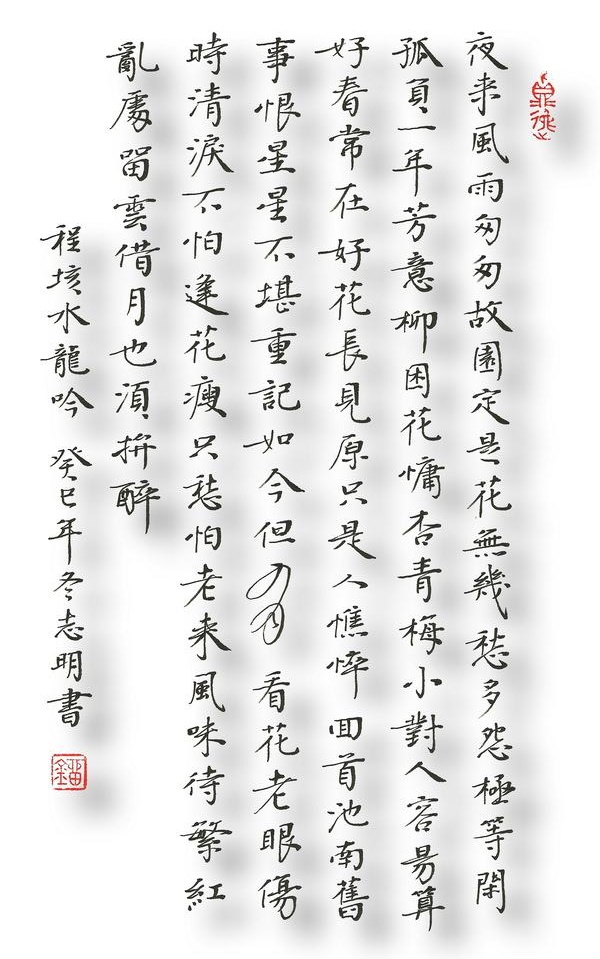 夜来風雨匆匆故園定是花無幾愁多怨極等閑
孤負一年芳意柳困花慵杏青梅小對人容易算
好春常在好花長見原只是人憔悴回首池南舊
事恨星星不堪重記如今但有看花老眼傷
時清淚不怕逢花瘦只愁怕老来風味待繁紅
亂處留雲借月也須拚醉
程垓水龍吟 癸巳年冬志明書